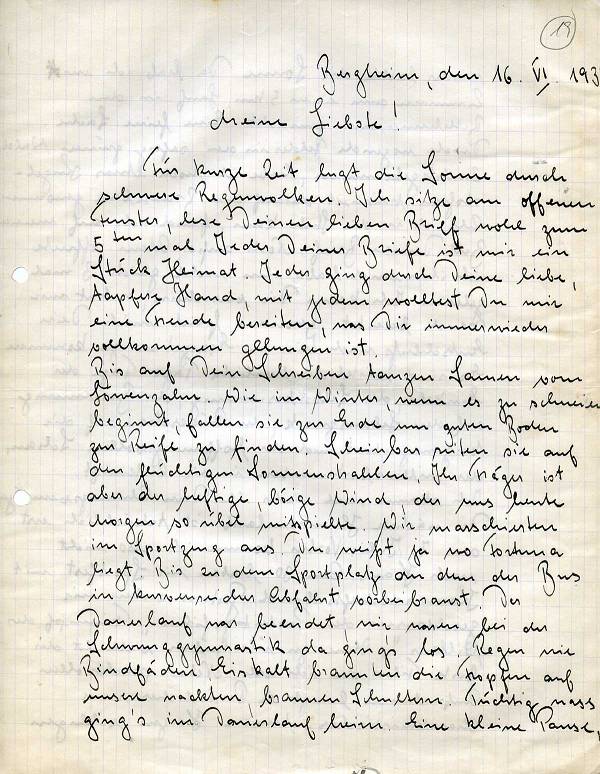 19
Bergheim, den 16. VI. 193
Meine Liebste!
Für kurze Zeit lugt die Sonne durch
schwere Regenwolken. Ich sitze am offenen
Fenster, lese Deinen lieben Brief wohl zum
5ten mal. Jeder Deiner Briefe ist mir ein
Stück Heimat. Jeder ging durch Deine liebe,
tapfere Hand, mit jedem wolltest Du mir
eine Freude bereiten, was Dir immerwieder
vollkommen gelungen ist.
Bis auf Dein Schreiben tanzen Samen vom
Löwenzahn. Wie im Winter, wenn es zu schneien
beginnt, fallen sie zur Erde um guten Boden
zur Reife zu finden. Scheinbar reiten sie auf
den feuchtigen Sonnenstrahlen. Ihr Träger ist
aber der luftige, böige Wind, der uns heute
Morgen so übel mitspielte. Wir marschierten
im Sportzeug aus. Du weißt ja wo Fortuna
liegt. Bis zu dem Sportplatz an dem der Bus
in kurvenreicher Abfahrt vorbeibraust. Der
Dauerlauf war beendet, wir waren bei der
Schwunggymnastik da gings los. Regen wie
Bindfäden. Eiskalt brannten die Tropfen auf
unsere nackten, braunen Schultern. Tüchtig nass
ging's im Dauerlauf heim. Eine kleine Pause,